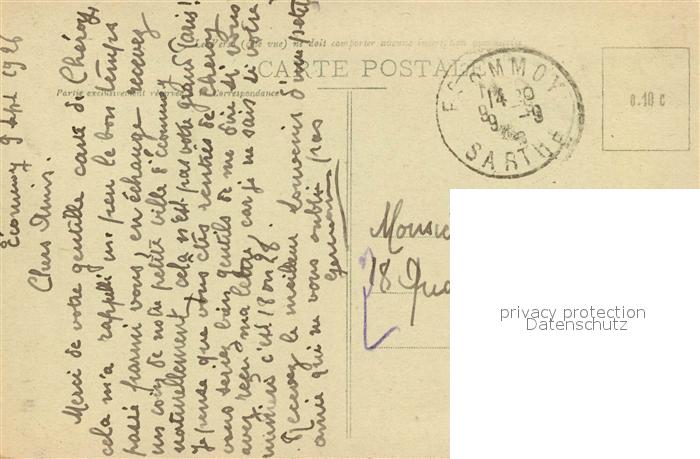 Le Verso (côté vue) ne doit comporter aucune inscription manuscrite
CARTE POSTALE
Partie exclusivement réservée à la Correspondance
ECOMMOY
14
9 -9
SARTHE
0.10 c
Écommoy 9 Sept 1926
Chers Amis.
Merci de votre gentille carte de Chéroy,
cela m'a rappelé un peu le bon temps
passé parmi vous, en échange recevez
un coin de notre petite ville d'Écommoy
naturellement, cela n'est pas votre grand Paris!
Je pense que vous êtes rentrés de Chéroy
vous seriez bien gentils de me dire si vous
avez reçu ma lettre car je ne sais si votre
numéro c'est 18 ou 28.
Recevez le meilleur souvenir d'une petite
amie qui ne vous oublie pas
Germaine
Monsie
18 Qua
privacy protection
Datenschutz